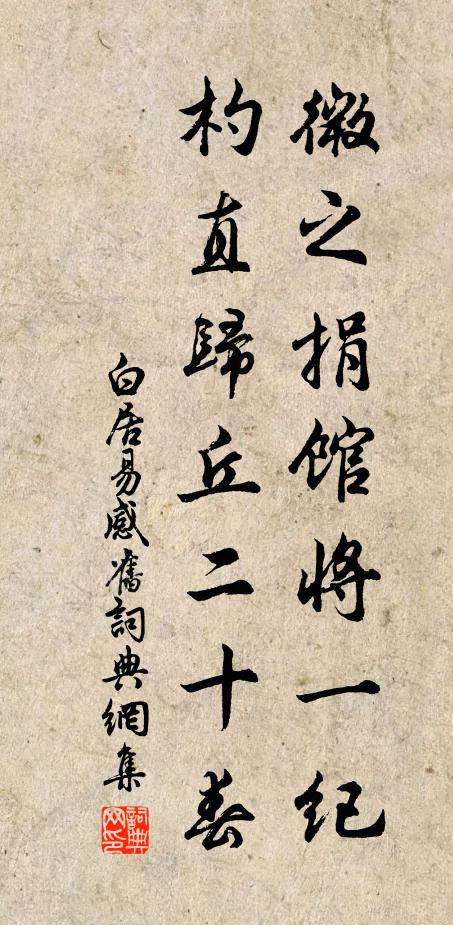 微之捐馆将一纪
杓直歸丘二十春
白居易感舊詞典網集
詞典
网印